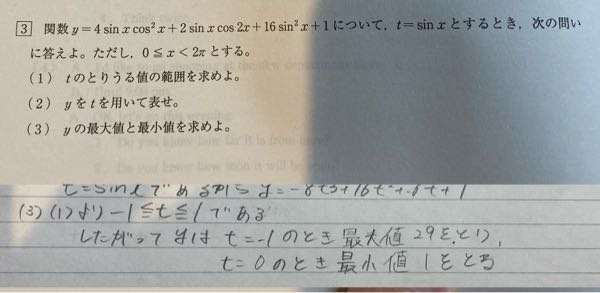 3 関数 y=4 sin x cos²x+2 sin x cos 2x+16 sin²x+1 について, t=sin x とするとき, 次の問い
に答えよ。ただし, 0≦x<2π とする。
(1) t のとりうる値の範囲を求めよ。
(2) y を t を用いて表せ。
(3) y の最大値と最小値を求めよ。
t=sinxであるから y=-8t3+16t²+6t+1
(3) (1)より -1≦t≦1である
したがって yは t=-1のとき 最大値 29をとり,
t=0のとき 最小値 1をとる